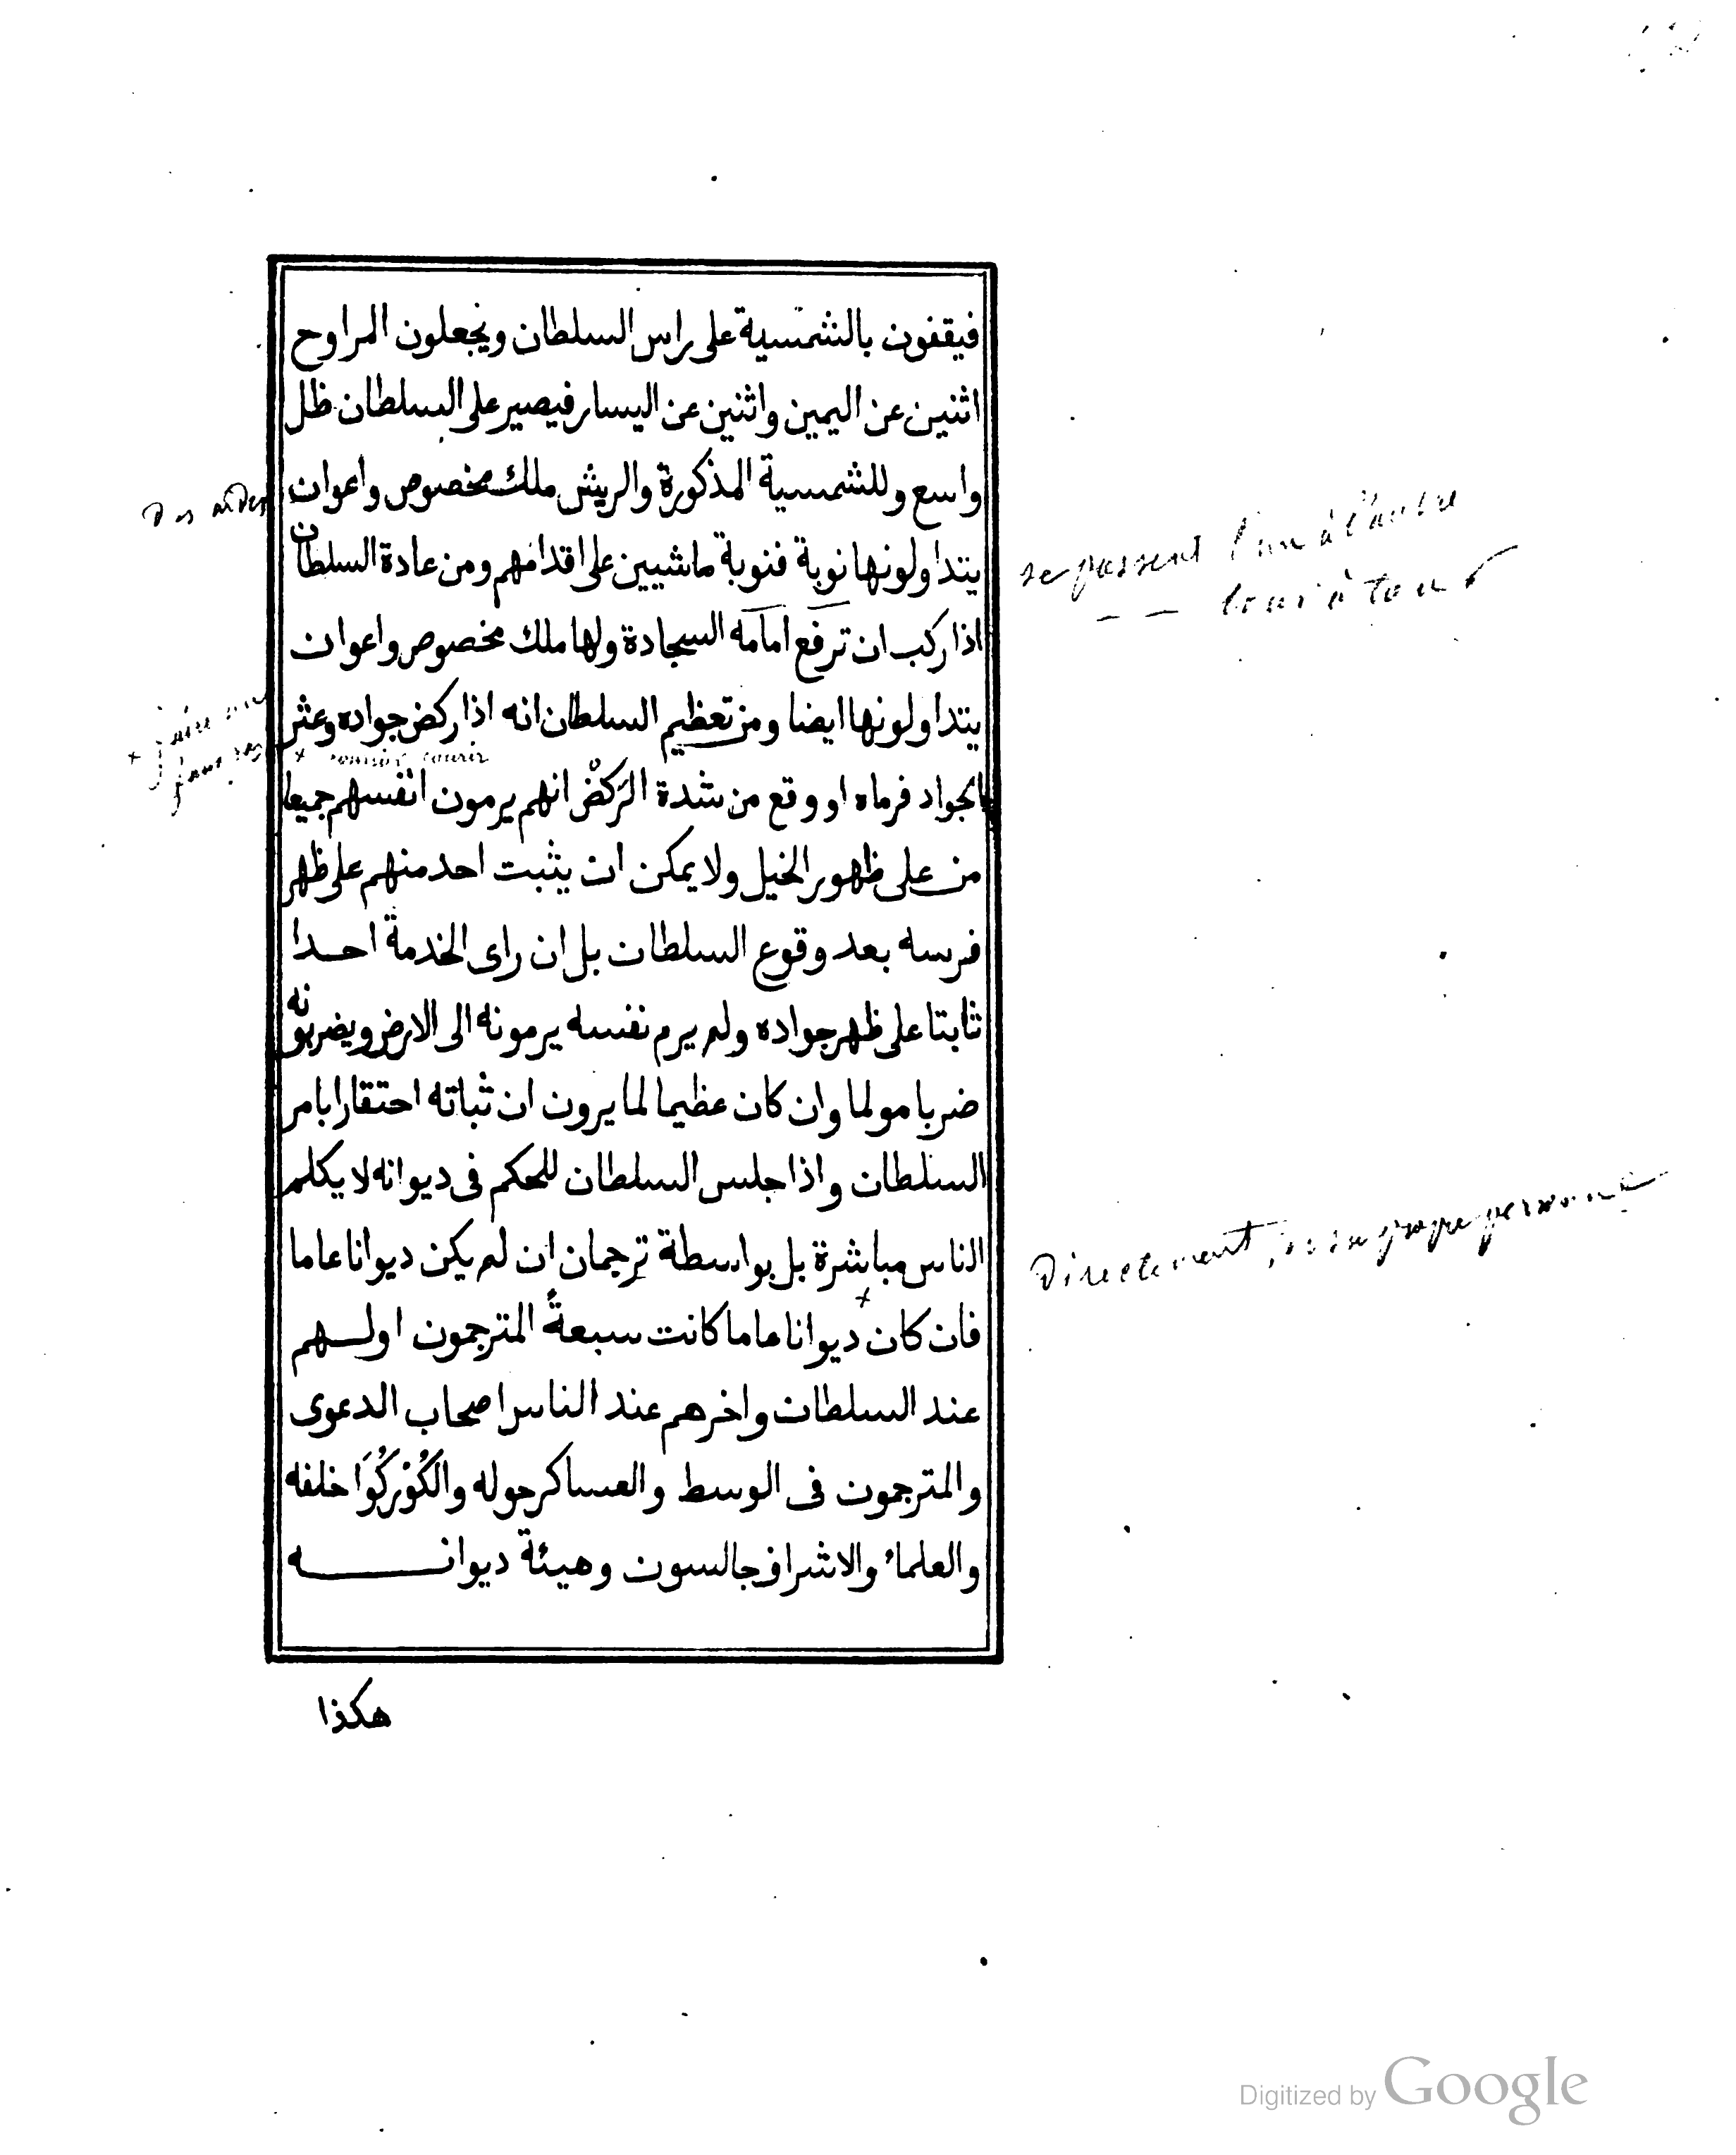 فيقفون بالشمسية على راس السلطان ويجعلون المراوح
اثنين عن اليمين واثنين عن اليسار فيصير على السلطان ظل
واسع وللشمسية المذكورة والريش ملك مخصوص واعوان
يتداولونها نوبة فنوبة ماشيين على اقدامهم ومن عادة السلطان
اذا ركب ان ترفع امامه السجادة ولها ملك مخصوص واعوان
يتداولونها ايضا ومن تعظيم السلطان انه اذا ركض جواده وعثر
الجواد فرماه او وقع من شدة الرَكضْ انهم يرمون انفسهم جميعا
من على ظهور الخيل ولا يمكن ان يثبت احد منهم على ظهر
فرسه بعد وقوع السلطان بل ان راى الخدمة احدا
ثابتا على ظهر جواده ولم يرم نفسه يرمونه الى الارض ويضربونه
ضربا مولما وان كان عظيما لما يرون ان ثباته احتقارا بامر
السلطان واذا جلس السلطان للحكم فى ديوانه لا يكلم
الناس مباشرة بل بواسطة ترجمان ان لم يكن ديوانا عاما
فان كان ديوانا عاما كانت سبعةً المترجمون اولهم
عند السلطان واخرهم عند الناس اصحاب الدعوى
والمترجمون فى الوسط والعساكر حوله والكُوْركُوَا خلفه
والعلماء والاشراف جالسون وهيئة ديوانه
هكذا
se passent l'un à l'autre
— — tour à tour
Directement,
Digitized by Google